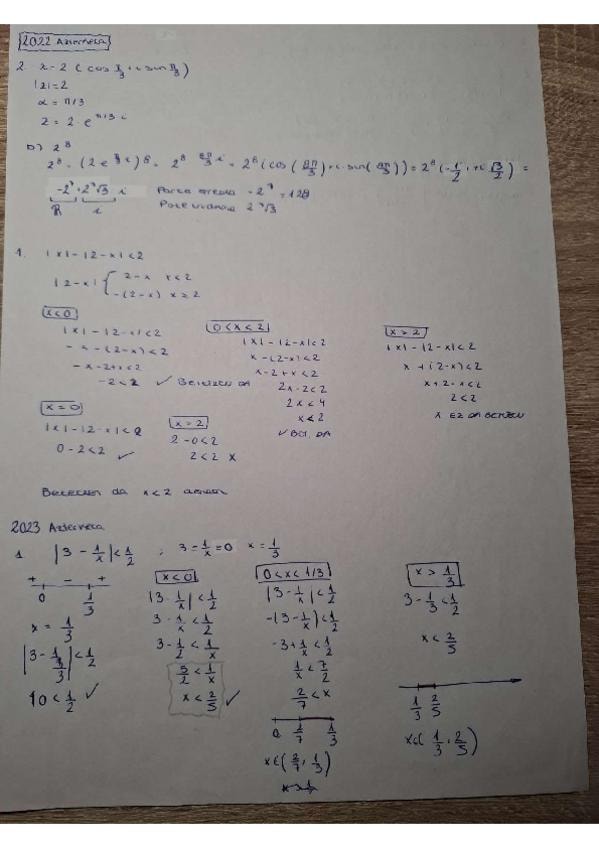 2022 Azterketa
2. z = 2 (cos π/3 + i sin π/3)
|z| = 2
α = π/3
z = 2 · e^(π/3 i)
b) z^8
z^8 = (2 e^(π/3 i))^8 = 2^8 e^(8π/3 i) = 2^8 (cos (8π/3) + i · sin (8π/3)) = 2^8 (-1/2 + i √3/2) =
-2^7 + 2^7√3 i
R i
Parte erreala -2^7 = 128
2^7√3
1. |x| - |2-x| < 2
|2-x| { 2-x x<2
-(2-x) x≥2
x<0
|x| - |2-x| < 2
-x - (2-x) < 2
-x - 2 + x < 2
-2 < 2 ✓ Betetzen da
0<x<2
|x| - |2-x| < 2
x - (2-x) < 2
x - 2 + x < 2
2x - 2 < 2
2x < 4
x < 2
✓ Bet. da
x>2
|x| - |2-x| < 2
x + (2-x) < 2
x + 2 - x < 2
2 < 2
x ez da betetzen
x=0
|x| - |2-x| < 2
0 - 2 < 2 ✓
x=2
2 - 0 < 2
2 < 2 x
Betetzen da x<2 denean
2023 Azterketa
1. |3 - 1/x| < 1/2 ; 3 = 1/x = 0 x = 1/3
+ - +
0 1/3
x = 1/3
|3 - 1/(1/3)| < 1/2
0 < 1/2 ✓
x<0
|3 - 1/x| < 1/2
3 - 1/x < 1/2
3 - 1/2 < 1/x
5/2 < 1/x
x < 2/5 ✓
0<x<1/3
|3 - 1/x| < 1/2
-(3 - 1/x) < 1/2
-3 + 1/x < 1/2
1/x < 7/2
2/7 < x
0 2/7 1/3
x∈(2/7, 1/3)
x > 1/3
3 - 1/3 < 1/2
x < 2/5
1/3 2/5
x∈(1/3, 2/5)